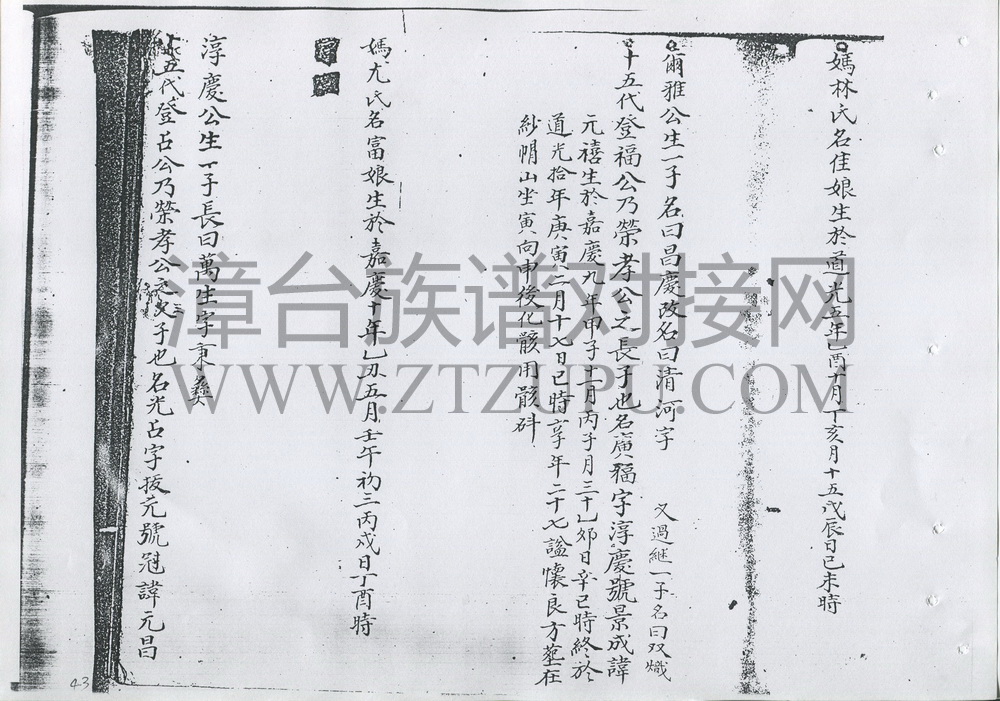 媽林氏名佳娘生於道光五年乙酉十月丁亥月十五戊辰日己未時
爾雅公生一子名曰昌慶改名曰清河字 又過継一子名曰双熾
十五代登福公乃榮孝公之長子也名廣福字淳慶號景成諱
元禧生於嘉慶九年甲子十一月丙子月三十乙卯日辛巳時終於
道光拾年庚寅二月十七日巳時享年二十七謚懷良方塟在
紗帽山坐寅向申後化骸用骸
媽尤氏名富娘生於嘉慶十年乙丑五月壬午初三丙戌日丁酉時
淳慶公生一子長曰萬生字秉彝
十五代登占公乃榮孝公之次子也名光占字拔元號冠諱元昌
漳台族谱对接网
WWW.ZTZUPU.COM
43